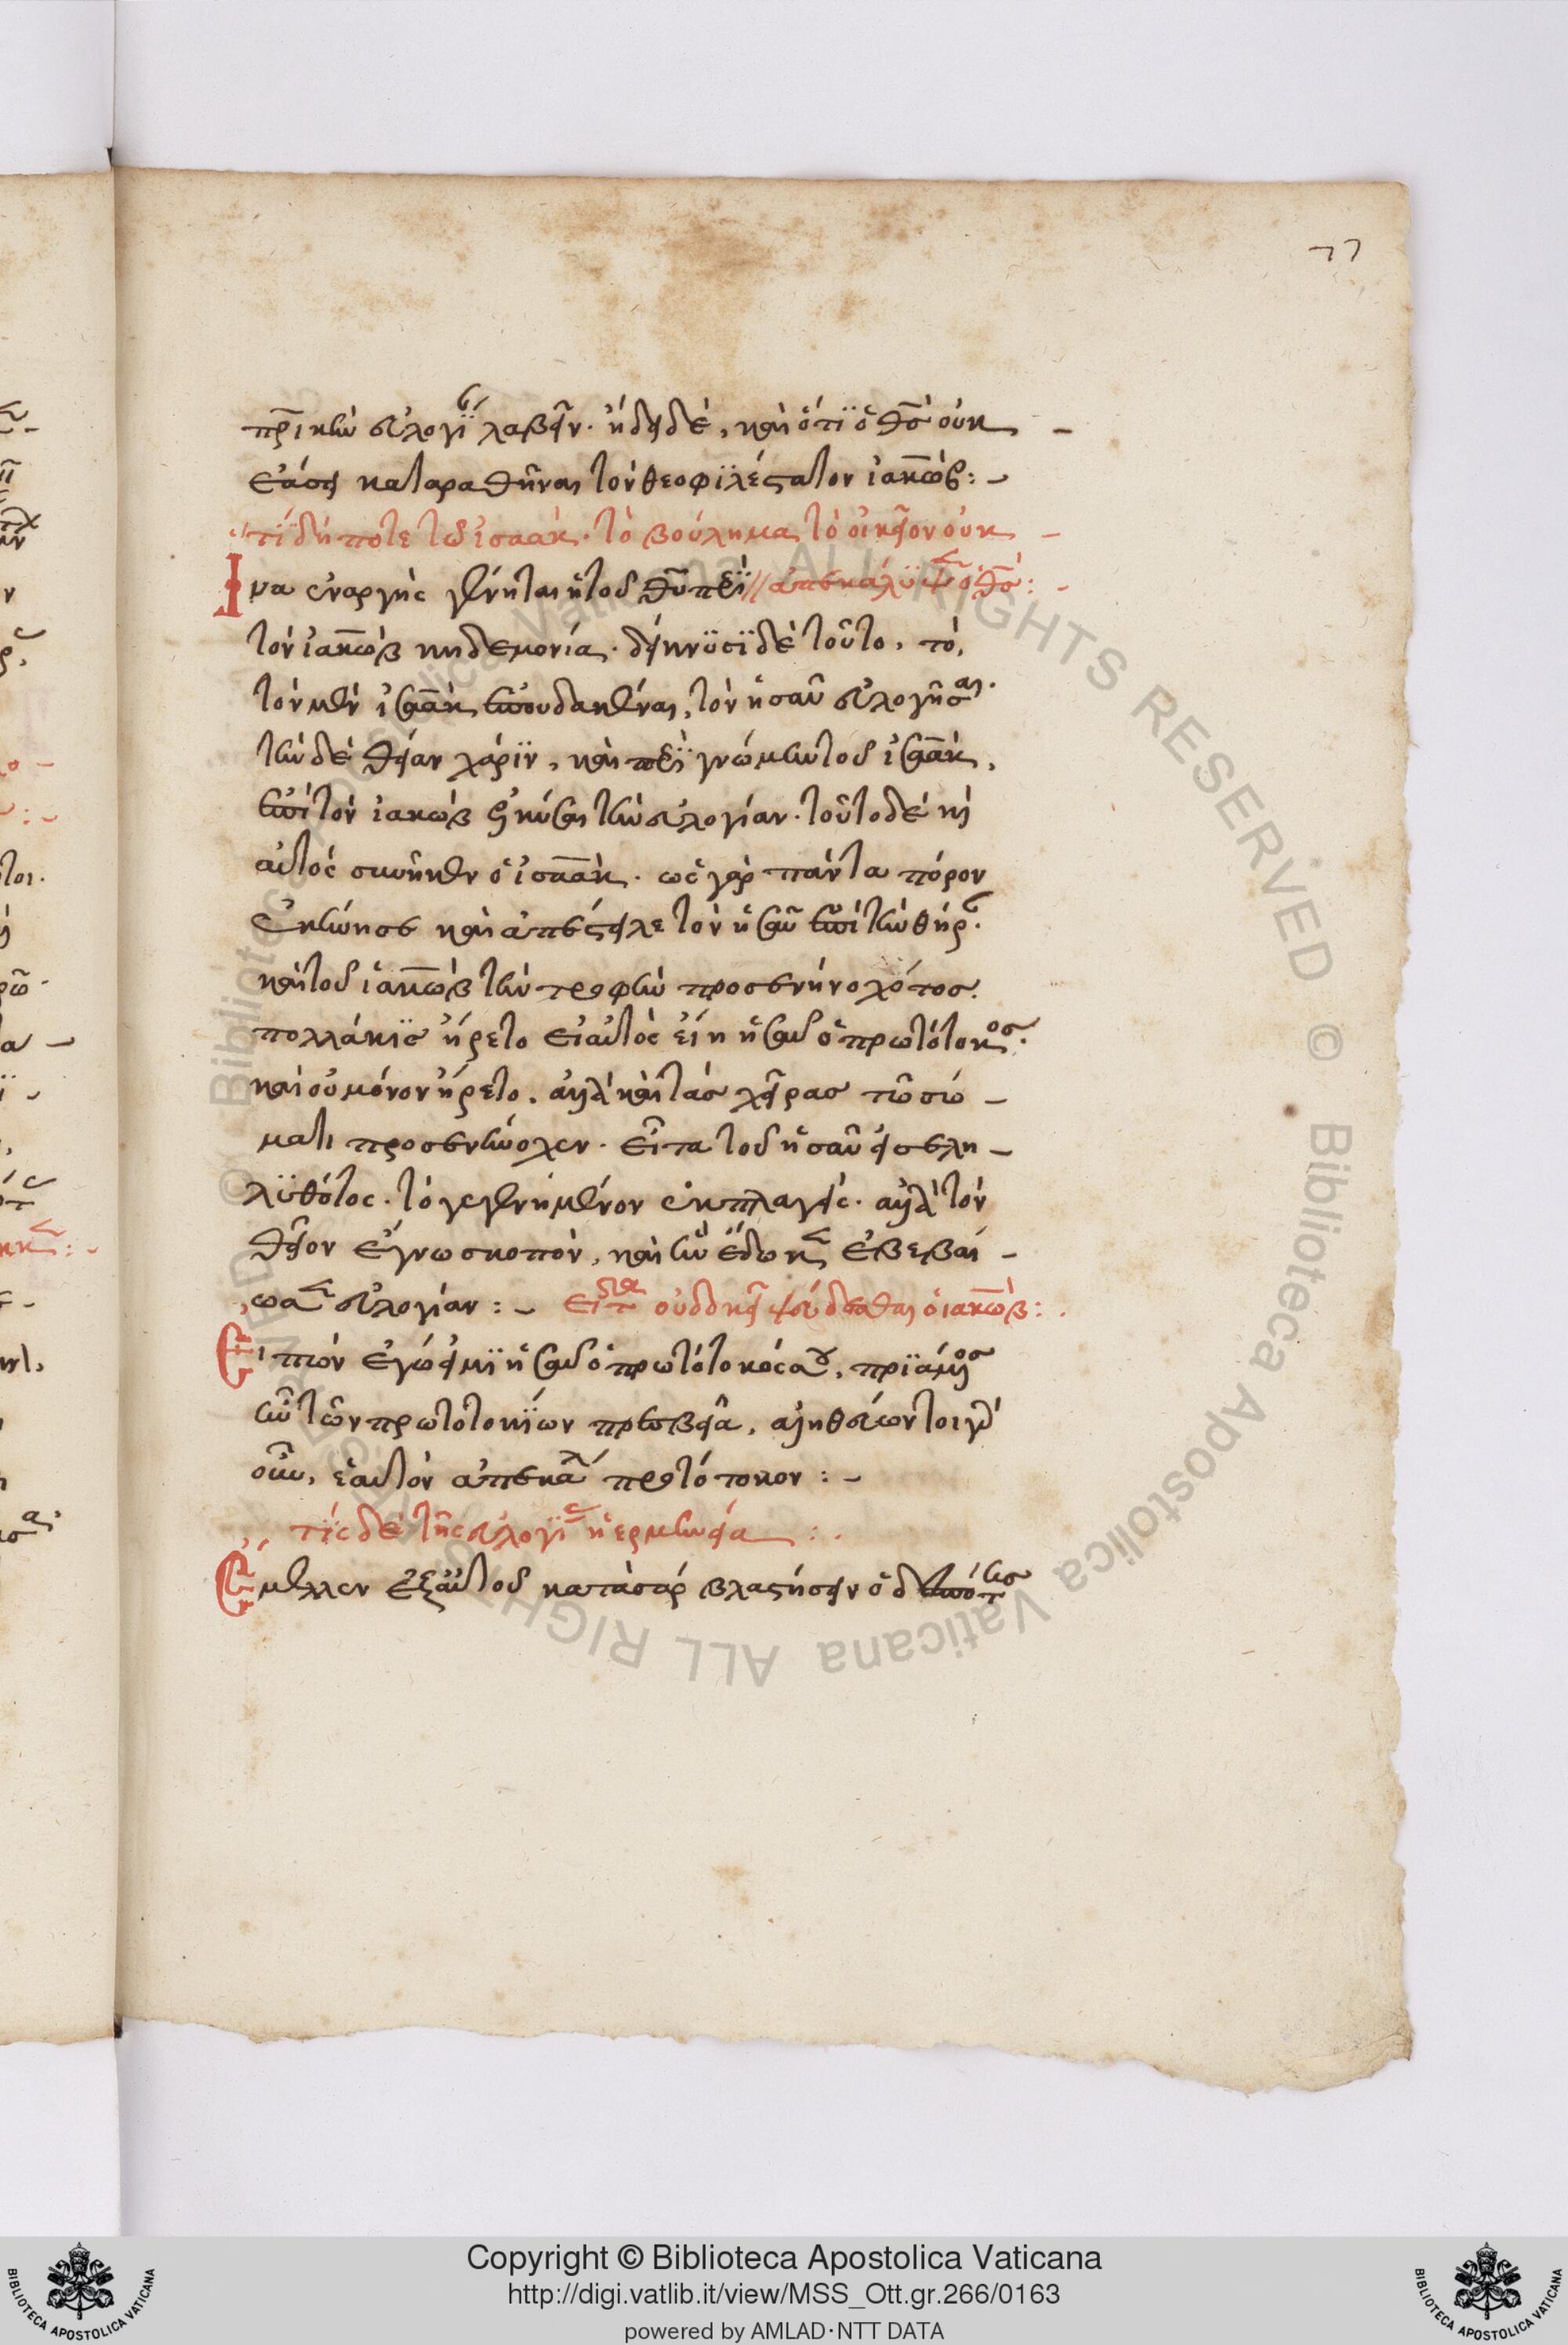 77
πρ̅ικὴν εὐλογί λαβεῖν. ᾔδει δέ, καὶ ὅτι ὁ θ̅ς οὐκ
ἐάσει καταραθῆναι τὸν θεοφιλέστατον ἰακώβ:
τί δήποτε τῷ ἰσαάκ. τὸ βούλημα τὸ οἰκεῖον οὐκ
Ἵνα ἐναργὴς γένηται ἡ τοῦ θ̅υ περὶ // ἀπεκάλυψεν ὁ θ̅ς:
τὸν ἰακώβ κηδεμονία. δείκνυσι δὲ τοῦτο, τό,
τὸν μὲν ἰσαὰκ σπουδακέναι, τὸν ἡσαῦ εὐλογῆσαι.
τὴν δὲ θείαν χάριν, καὶ παρὰ γνώμην τοῦ ἰσαὰκ,
ἐπὶ τὸν ἰακώβ ἑλκύσαι τὴν εὐλογίαν. τοῦτο δὲ καὶ
αὐτὸς συνῆκεν ὁ ἰσαάκ. ὡς γὰρ πάντα πόρον
ἐκίνησε καὶ ἀπέστειλε τὸν ἡσαῦ ἐπὶ τὴν θήρ.
καὶ τοῦ ἰακώβ τὴν τροφὴν προσενηνοχότος.
πολλάκις ἤρετο εἰ αὐτὸς εἴη ἡσαῦ ὁ πρωτότοκος.
καὶ οὐ μόνον ἤρετο, ἀλλὰ καὶ τὰς χεῖρας τῷ σώ
ματι προσενήνοχεν. εἶτα τοῦ ἡσαῦ εἰσελη
λυθότος. τὸ γεγενημένον ἐκπλαγείς. ἀλλὰ τὸν
θεῖον ἔγνω σκοπὸν, καὶ ἣν ἔδωκεν ἐβεβαί
ωσεν εὐλογίαν: εἶτα οὐ δοκεῖ ψεύδεσθαι ὁ ἰακώβ:
Εἰπὼν ἐγώ εἰμι ἡσαῦ ὁ πρωτότοκός σου, πριάμενος
ἦν τῶν πρωτοτοκίων πρεσβεῖα, ἀληθεύων τοιγὰρ
οὖν, ἑαυτὸν ἀπεκάλ πρωτότοκον:
τίς δὲ τῆς εὐλογί ἡ ἑρμηνεία:
Ἔμελλεν ἐξ αὐτοῦ κατὰ σάρ βλαστήσειν ὁ δεσπότης
Copyright © Biblioteca Apostolica Vaticana
http://digi.vatlib.it/view/MSS_Ott.gr.266/0163
powered by AMLAD·NTT DATA